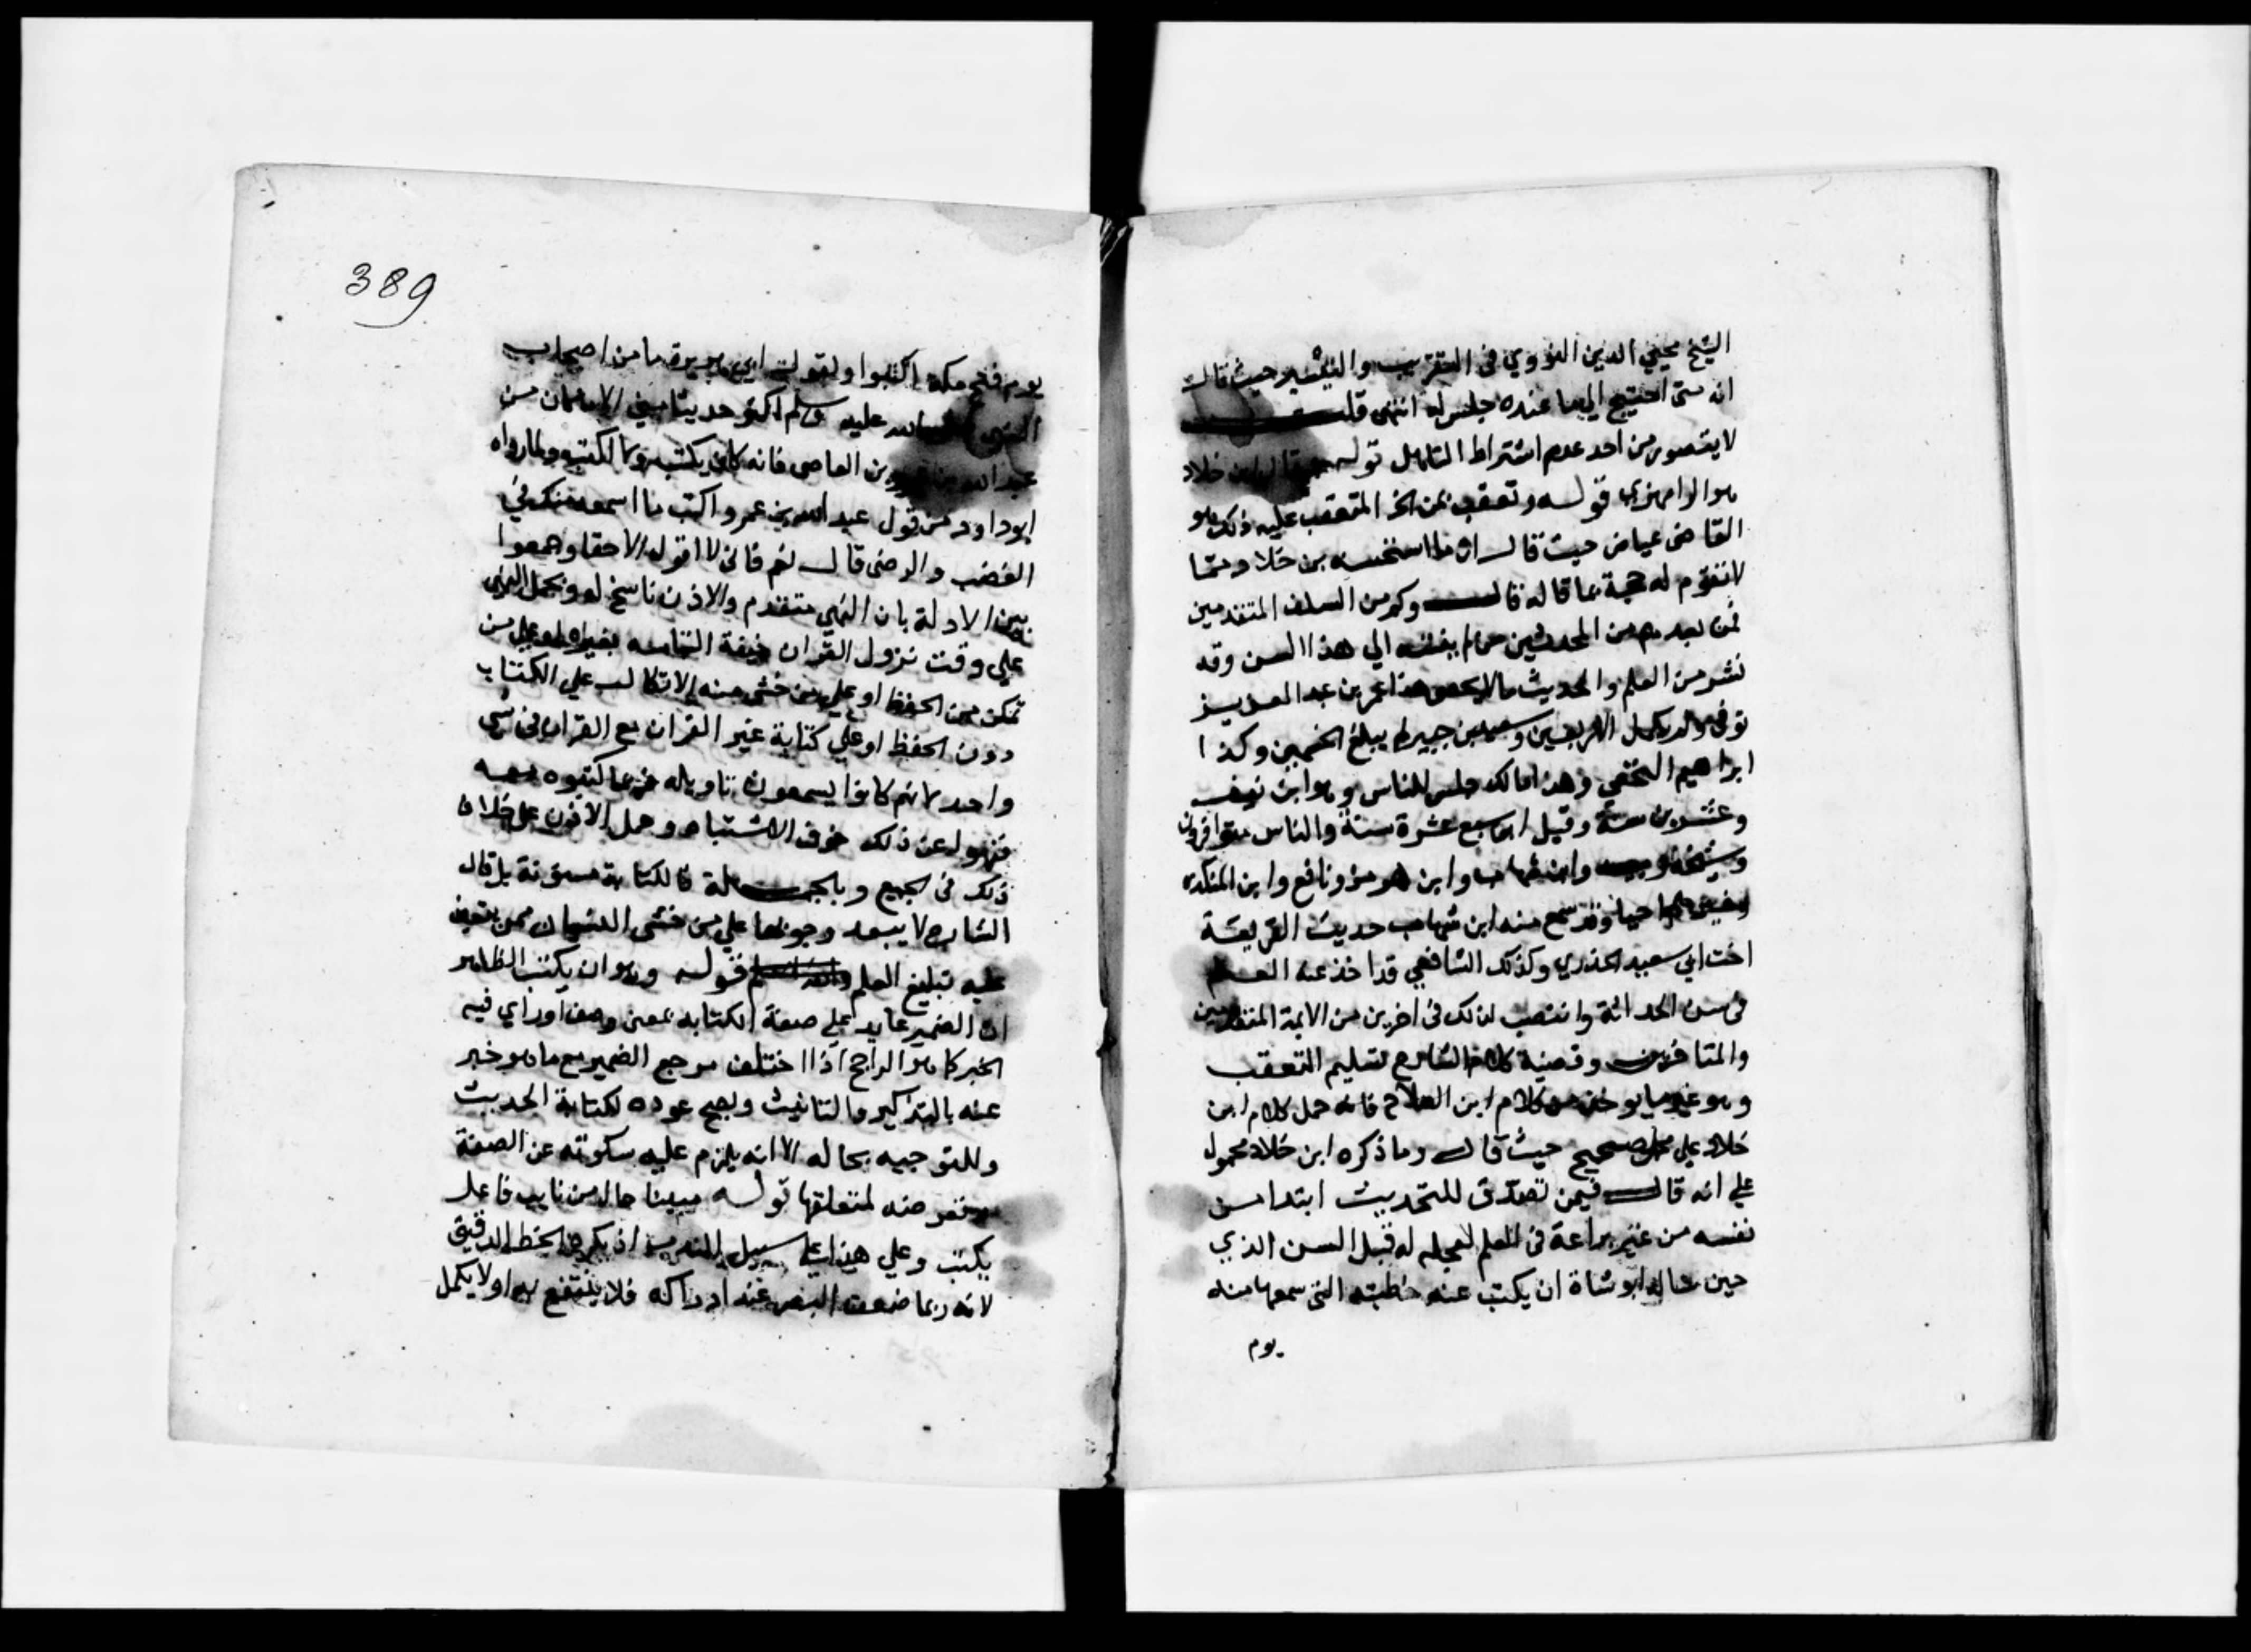 الشيخ محيي الدين النووي في التقريب والتيسير حيث قال
انه متى احتيج الي ما عنده جلس له انتهى قلت
لا يتصور من احد عدم اشتراط التاهل قوله قال ابن خلاد
هو الرامهرمزي قوله وتعقب بمن الخ المتعقب عليه ذلك هو
القاضي عياض حيث قال ان ما استحسنه بن خلاد مما
لا تقوم له حجة بما قاله قال وكم من السلف المتقدمين
فمن بعدهم من المحدثين من لم ينته الي هذا السن وقد
نشر من العلم والحديث ما لا يحصى هذا عمر بن عبد العزيز
توفي ولم يكمل الاربعين وسعيد بن جبير لم يبلغ الخمسين وكذا
ابراهيم النخعي وهذا مالك جلس للناس وهو ابن نيف
وعشرين سنة وقيل ابن سبع عشرة سنة والناس متوافرون
وشيوخه وابن شهاب وابن هرمز ونافع وابن المنكدر
وغيرهم احيا وقد سمع منه ابن شهاب حديث الفريعة
اخت ابي سعيد الخدري وكذلك الشافعي قد اخذ عنه العلم
في سن الحداثة وانتصب لذلك في اخرين من الايمة المتقدمين
والمتاخرين وقضية كلام الشارح تسليم التعقب
وهو غير ما يوخذ من كلام ابن الصلاح فانه حمل كلام ابن
خلاد علي محمل صحيح حيث قال وما ذكره ابن خلاد محمول
علي انه قال فيمن تصدى للتحديث ابتدا من
نفسه من غير براعة في العلم تعجله له قبل السن الذي
حين سال ابو شاة ان يكتب عنه خطبته التي سمعها منه
يوم
389
يوم فتح مكة اكتبوا ولقول ابي هريرة ما من اصحاب
النبي صلى الله عليه وسلم اكثر حديثا مني الا ما كان من
عبد الله بن عمرو بن العاصى فانه كان يكتب ولا اكتب ولما رواه
ابو داود من قول عبد الله بن عمرو اكتب ما اسمعه منك في
الغضب والرضى قال نعم فاني لا اقول الا حقا وجمعوا
بين الادلة بان النهي متقدم والاذن ناسخ له وبحمل النهي
علي وقت نزول القران خيفة التباسه بغيره او علي من
تمكن من الحفظ او علي من خشي منه الاتكال علي الكتاب
دون الحفظ او علي كتابة غير القران مع القران في شي
واحد لانهم كانوا يسمعون تاويله فربما كتبوه معه
فنهوا عن ذلك خوف الاشتباه وحمل الاذن علي خلاف
ذلك في الجميع وبالجملة فالكتابة مسنونة بل قال
الشارح لا يبعد وجوبها علي من خشي النسيان ممن يتعين
عليه تبليغ العلم قوله وهو ان يكتب الظاهر
ان الضمير عايد علي صفة الكتابة بمعنى وصف او راي فيه
الخبر كما هو الراجح اذا اختلف مرجع الضمير مع ما هو خبر
عنه بالتذكير والتانيث ويصح عوده لكتابة الحديث
وللتوجيه بحاله الا انه يلزم عليه سكوته عن الصفة
منه لمتعلقها قوله مبينا حال من نايب فاعل
يكتب وعلي هذا علي سبيل الندب اذ يكره الخط الدقيق
لانه ربما ضعف البصر عند ادراكه فلا ينتفع به او لا يكمل